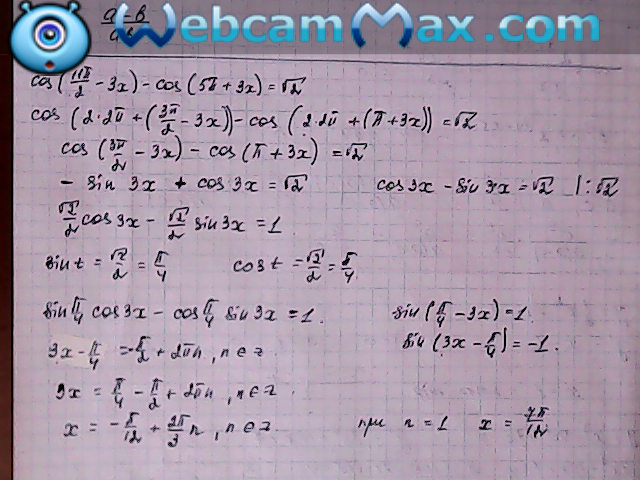 a-b
WebcamMax.com
cos(11π/2 - 3x) - cos(5π + 3x) = √2
cos(2·2π + (3π/2 - 3x)) - cos(2·2π + (π + 3x)) = √2
cos(3π/2 - 3x) - cos(π + 3x) = √2
- sin 3x + cos 3x = √2 cos 3x - sin 3x = √2 | : √2
√2/2 cos 3x - √2/2 sin 3x = 1
sin t = √2/2 = π/4 cos t = √2/2 = π/4
sin π/4 cos 3x - cos π/4 sin 3x = 1. sin(π/4 - 3x) = 1.
sin(3x - π/4) = -1.
3x - π/4 = -π/2 + 2πn, n ∈ z
3x = π/4 - π/2 + 2πn, n ∈ z.
x = -π/12 + 2π/3 n, n ∈ z. при n = 1 x = 7π/12